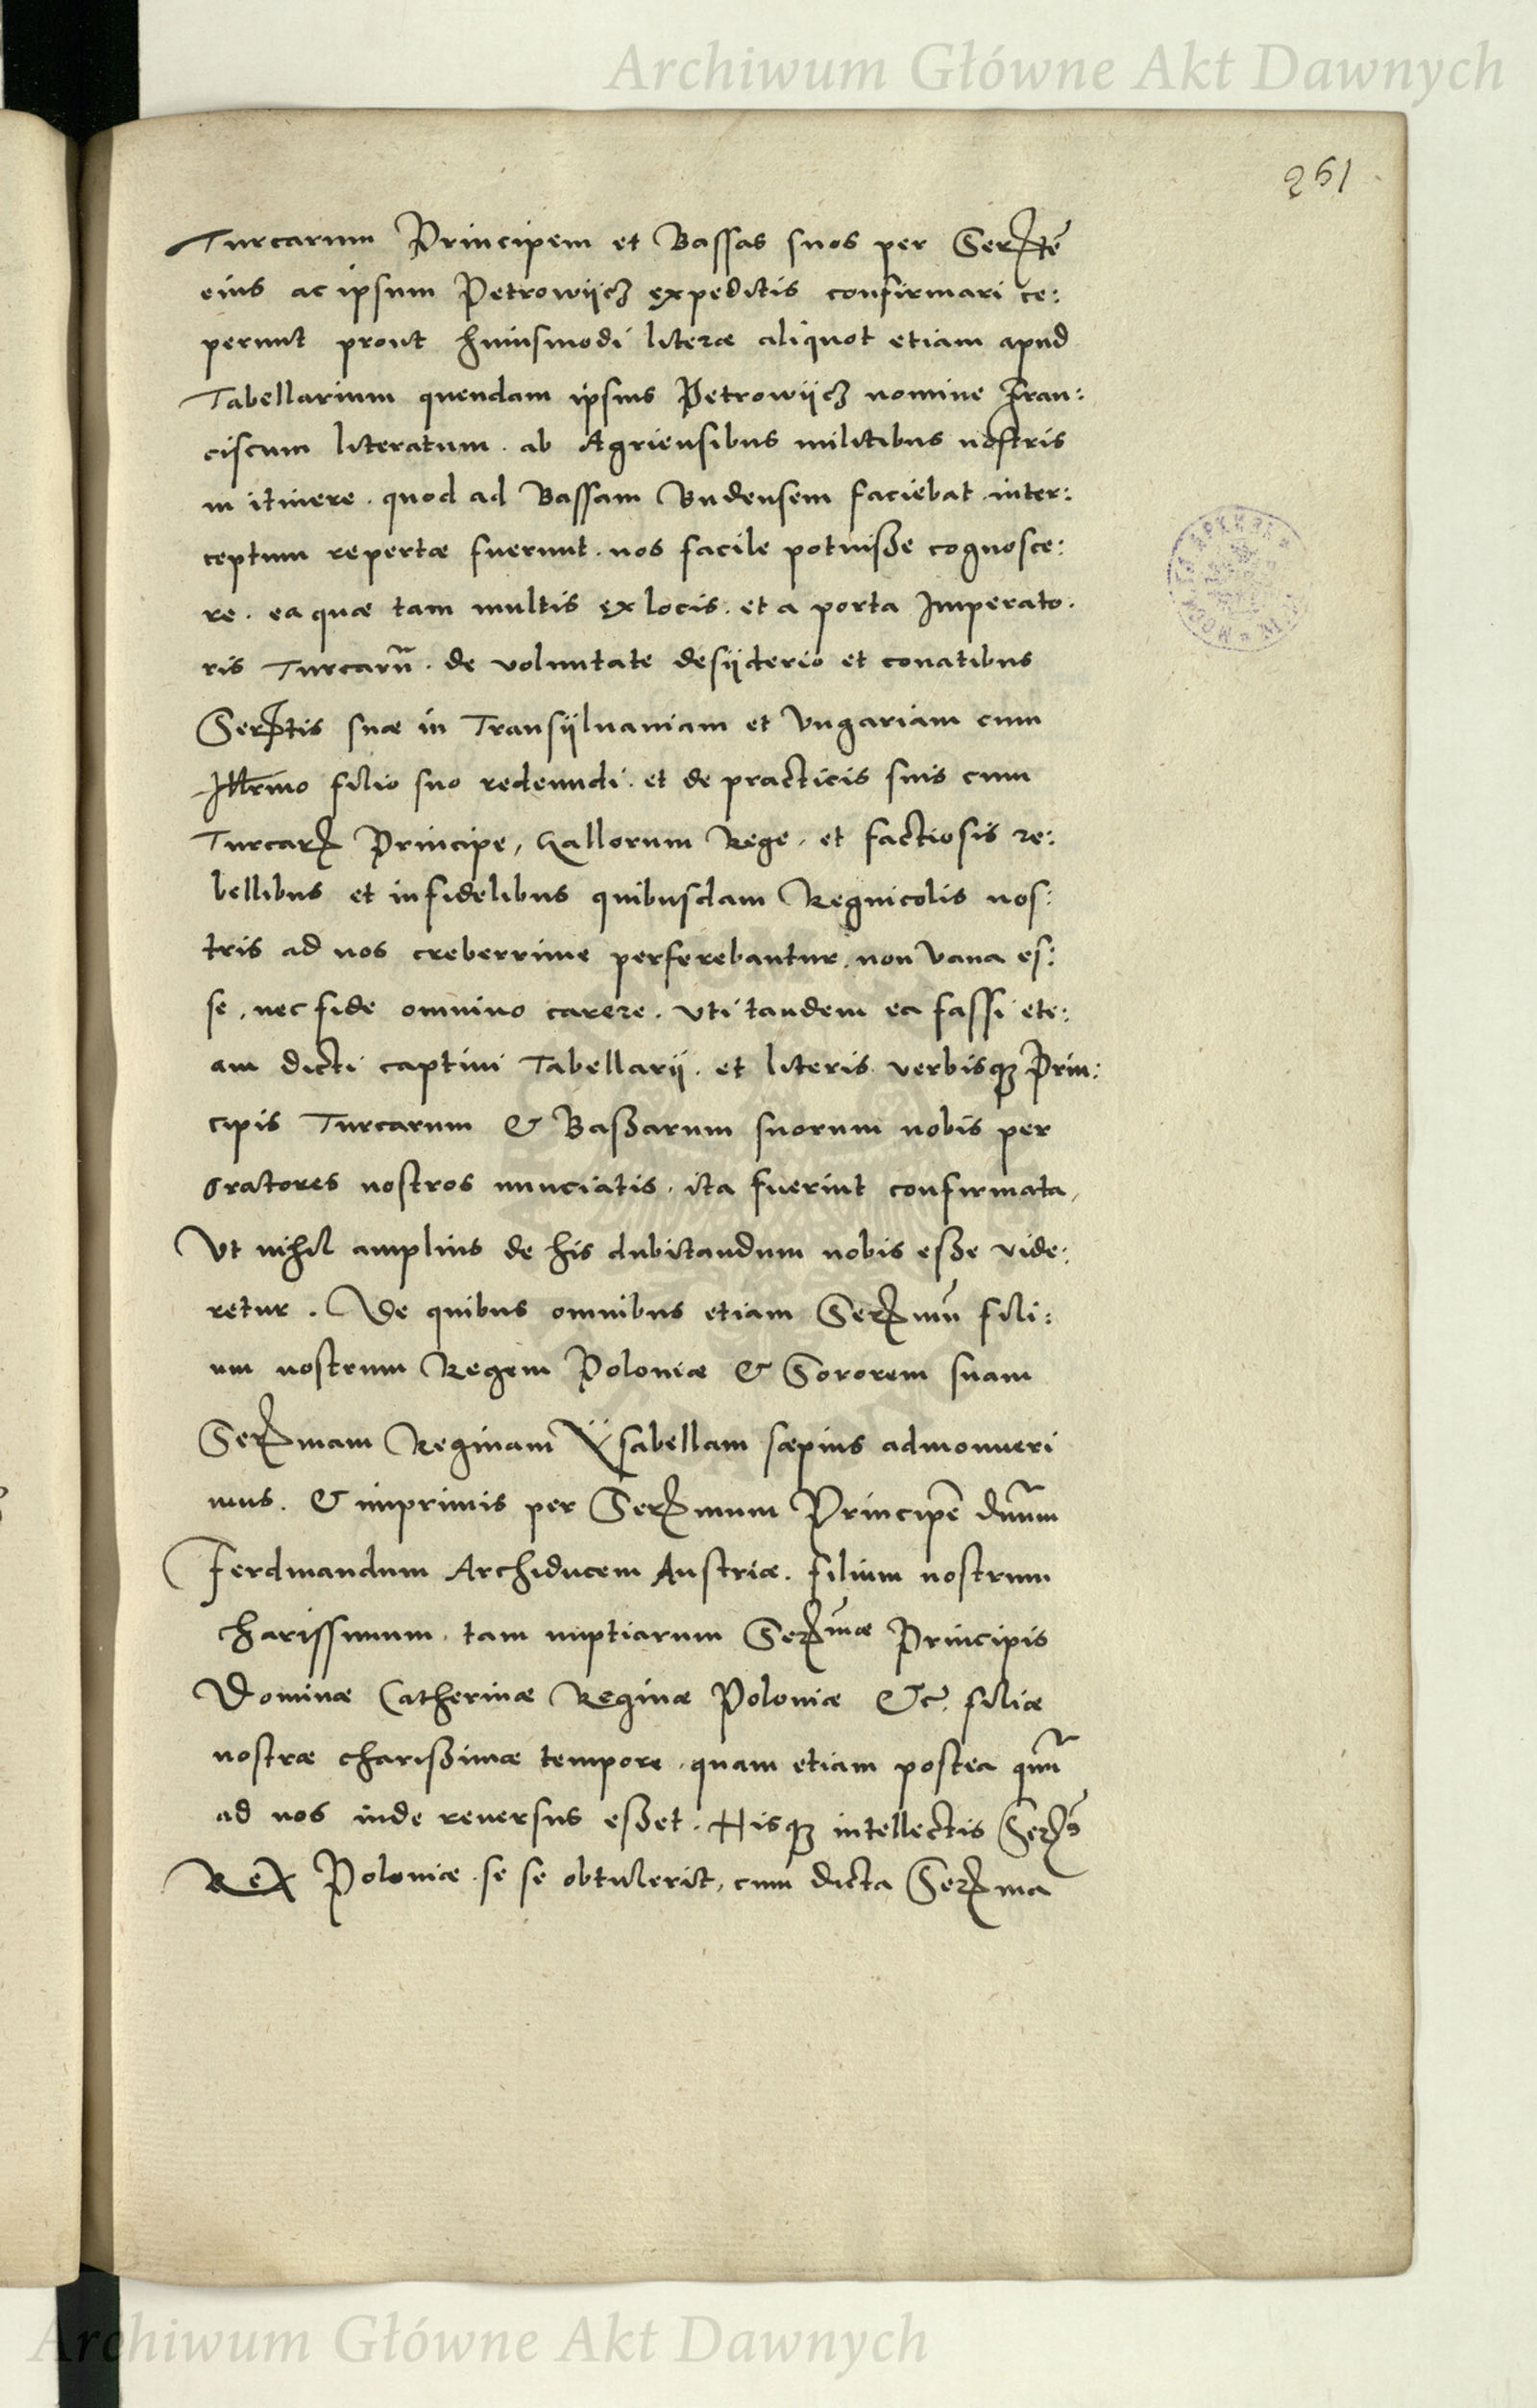 Archiwum Główne Akt Dawnych
261
Turcarum Principem et Bassas suos per Serte͂
eius ac ipsum Petrowÿcz expeditis confirmari ce:
perunt prout huiusmodi literæ aliquot etiam apud
Tabellarium quendam ipsius Petrowÿcz nomine Fran:
ciscum literatum. ab Agriensibus militibus nostris
in itinere. quod ad Bassam Budensem faciebat. inter:
ceptum repertæ fuerunt. nos facile potuisse cognosce:
re. ea quæ tam multis ex locis. et a porta Imperato.
ris Turcaru͂. de voluntate desÿderio et conatibus
Sertis suæ in Transÿluaniam et Vngariam cum
Illrmo filio suo redeundi. et de practicis suis cum
Turcarꝝ Principe, Gallorum Rege. et factiosis re:
bellibus et infidelibus quibusdam Regnicolis nos:
tris ad nos creberrime perferebantur. non vana es:
se, nec fide omnino carere. vti tandem ea fassi ete:
am dicti captiui Tabellarij. et literis verbisqꝫ Prin:
cipis Turcarum & Bassarum suorum nobis per
oratores nostros nunciatis. ita fuerint confirmata,
Vt nihil amplius de his dubitandum nobis esse vide:
retur. De quibus omnibus etiam Serꝫmu͂ fili:
um nostrum Regem Poloniæ & Sororem suam
Serꝫmam Reginam Ÿsabellam sæpius admonueri
mus. & imprimis per Serꝫmum Principe͂ dnu͂m
Ferdinandum Archiducem Austriæ. filium nostrum
charissimum. tam nuptiarum Serꝫmæ Principis
Dominæ Catherinæ Reginæ Poloniæ &c. filiæ
nostræ charissimæ tempore. quam etiam postea quu͂
ad nos inde reuersus esset. Hisqꝫ intellectis Serꝫs
Rex Poloniæ. se se obtulerit, cum dicta Serꝫma
Archiwum Główne Akt Dawnych